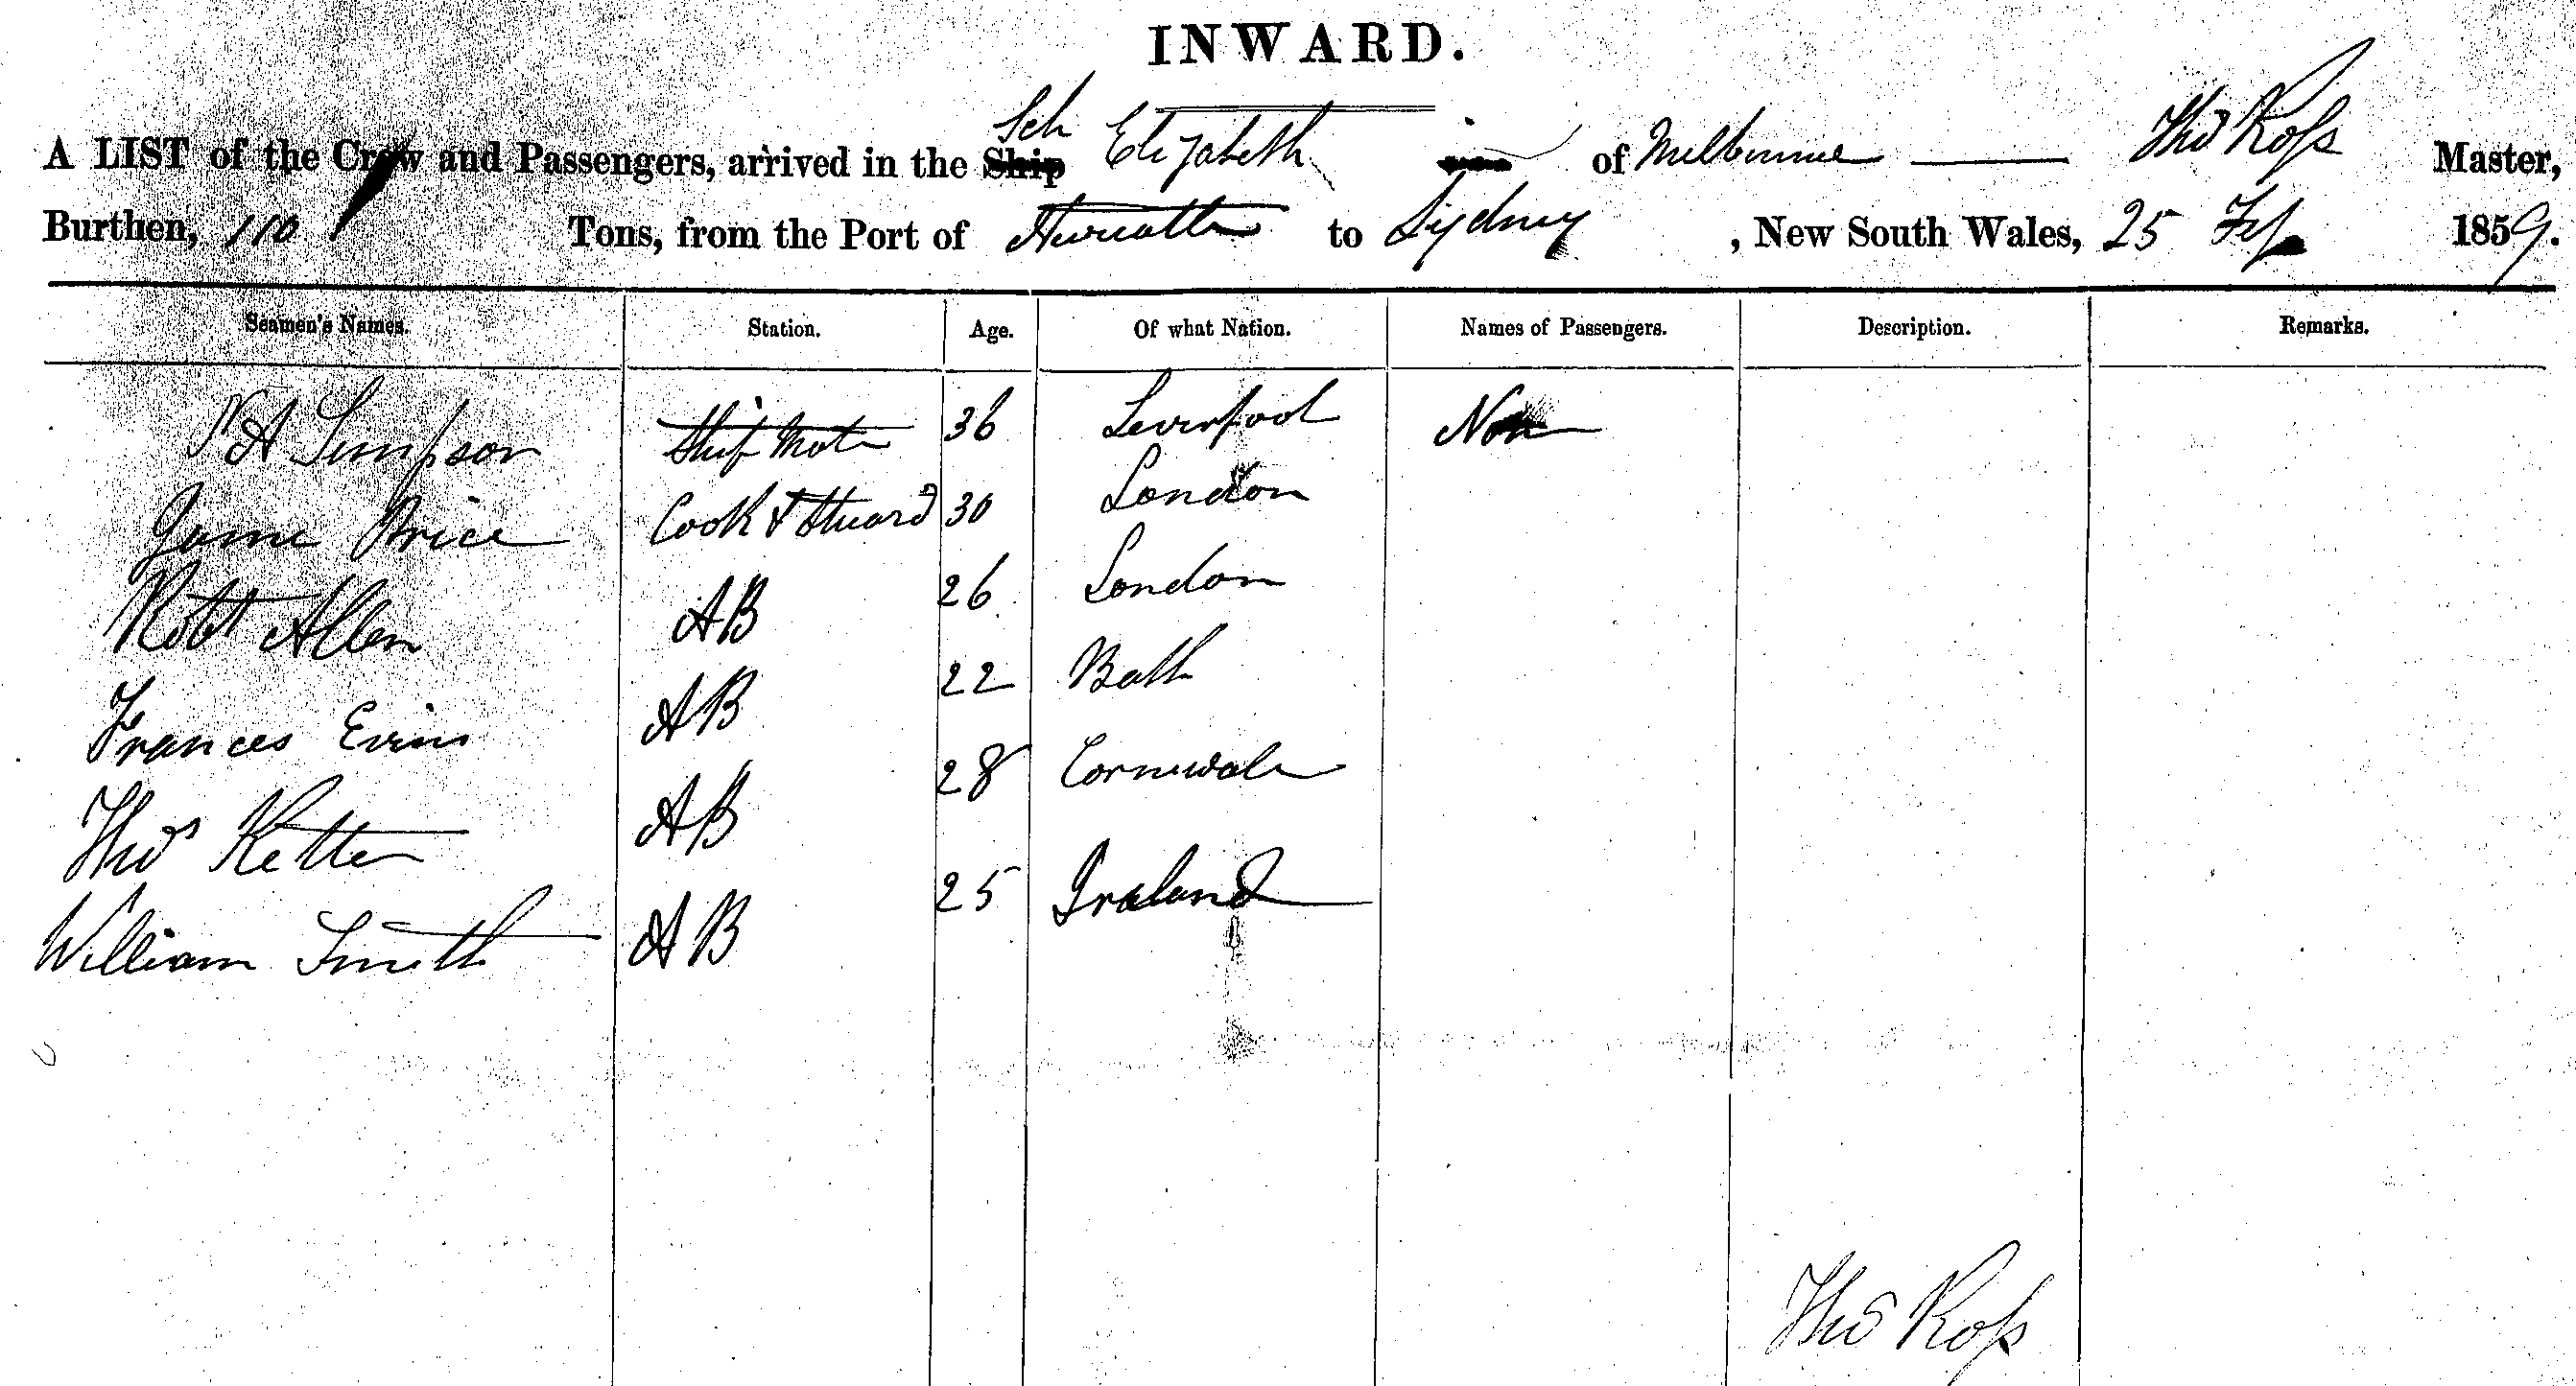 INWARD.
A LIST of the Crew and Passengers, arrived in the Ship Sch Elizabeth of Melbourne Thos Ross Master,
Burthen, 110 Tons, from the Port of to Sydney, New South Wales, 25 Feb 1859.
Seamen's Names. Station. Age. Of what Nation. Names of Passengers. Description. Remarks.
A Simpson Mate 36 Liverpool Non
Jame Price Cook & Stuard 30 London
Robt Allen AB 26 London
Frances AB 22 Bath
Thos Ketter AB 28 Cornwale
William Smith AB 25 Ireland
Thos Ross